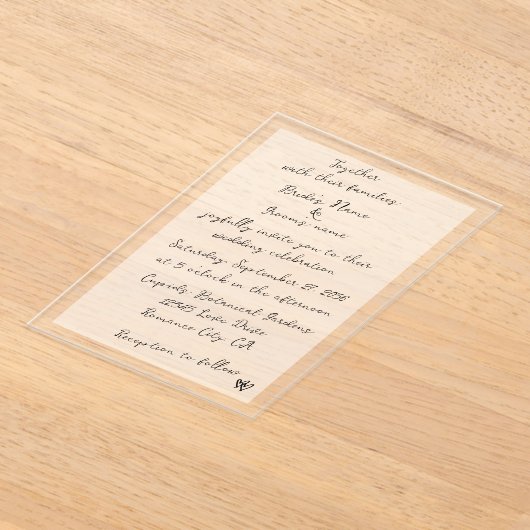 Together
with their families
Bride's Name
&
Grooms name
joyfully invite you to their
wedding celebration
Saturday, September 27, 2036
at 5 o'clock in the afternoon
Cupids Botanical Gardens
12345 Love Drive
Romance City, CA
Reception to follow